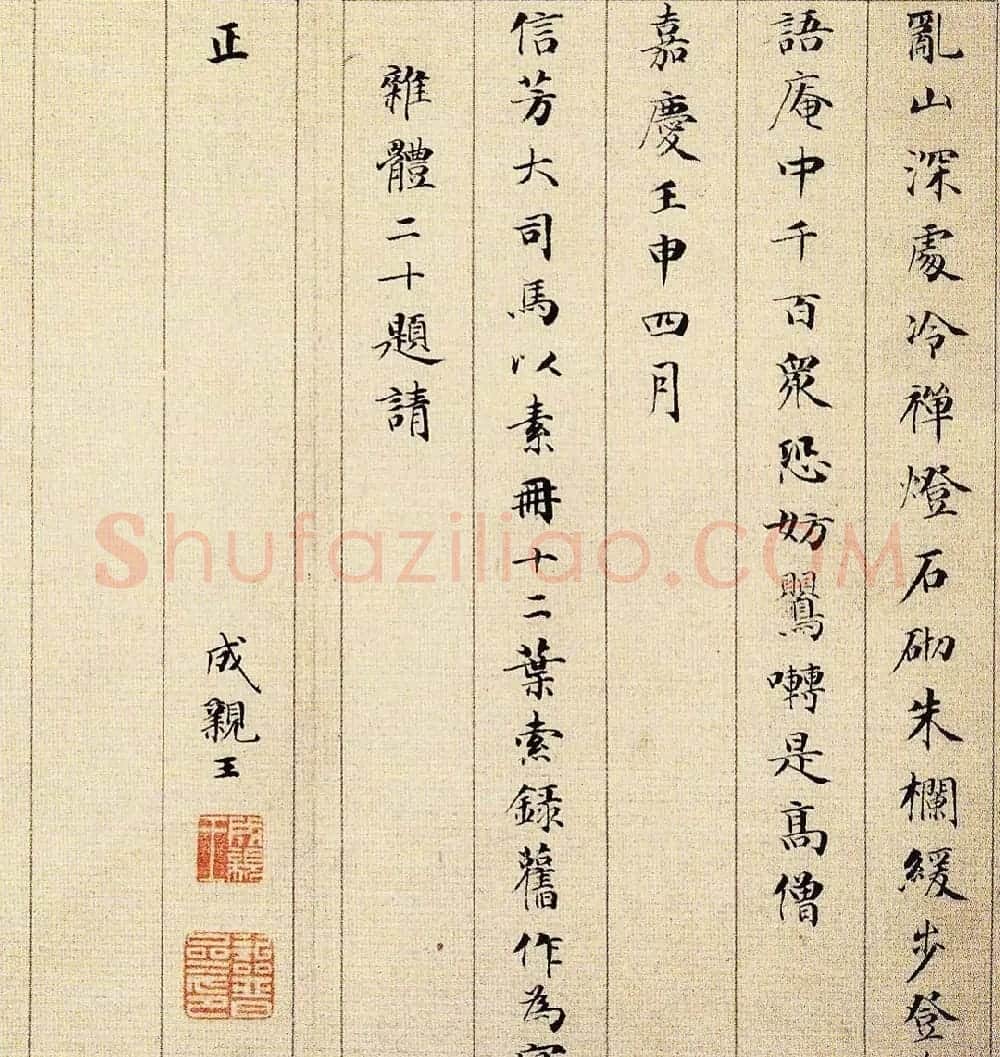 亂山深處冷禅燈石砌朱欄緩步登
語庵中千百衆恐妨鸎囀是高僧
嘉慶壬申四月
信芳大司馬以素冊十二葉索録舊作為
雜體二十題請
正
成親王
成親王
Shufaziliao.COM